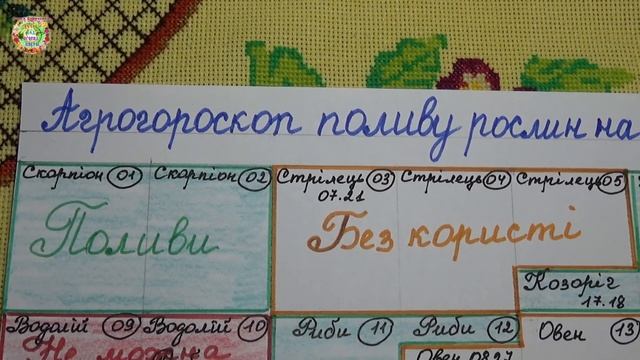 Агрогороскоп поливу рослин на
Скорпіон 01 Скорпіон 02 Стрілець 03 Стрілець 04 Стрілець 05
07.21
Поливи
Без користі
Козоріг
17.18
Водолій 09 Водолій 10 Риби 11 Риби 12 Овен 13
Не можна
Овен 08.27